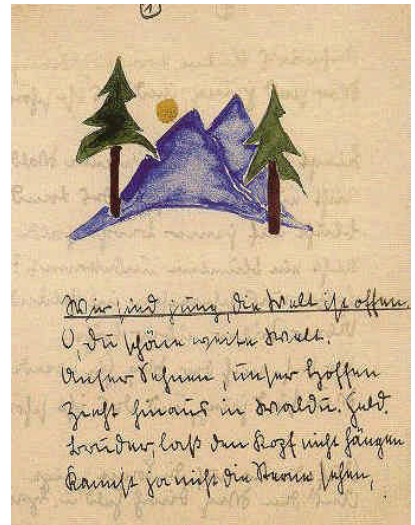 1
Wir sind jung, die Welt ist offen
O, du schöne weite Welt.
Unser Sehnen, unser Hoffen
Zieht hinaus in Wald u. Feld.
Bruder, laß den Kopf nicht hängen
Kannst ja nicht die Sterne sehen,